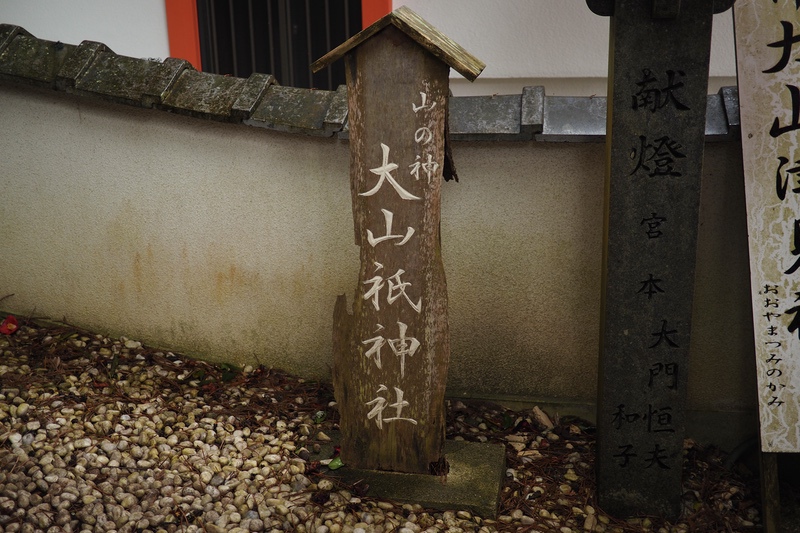 山の神
大山祇神社
献燈
宮本
大門恒夫
和子
大山津見神
おおやまつみのかみ